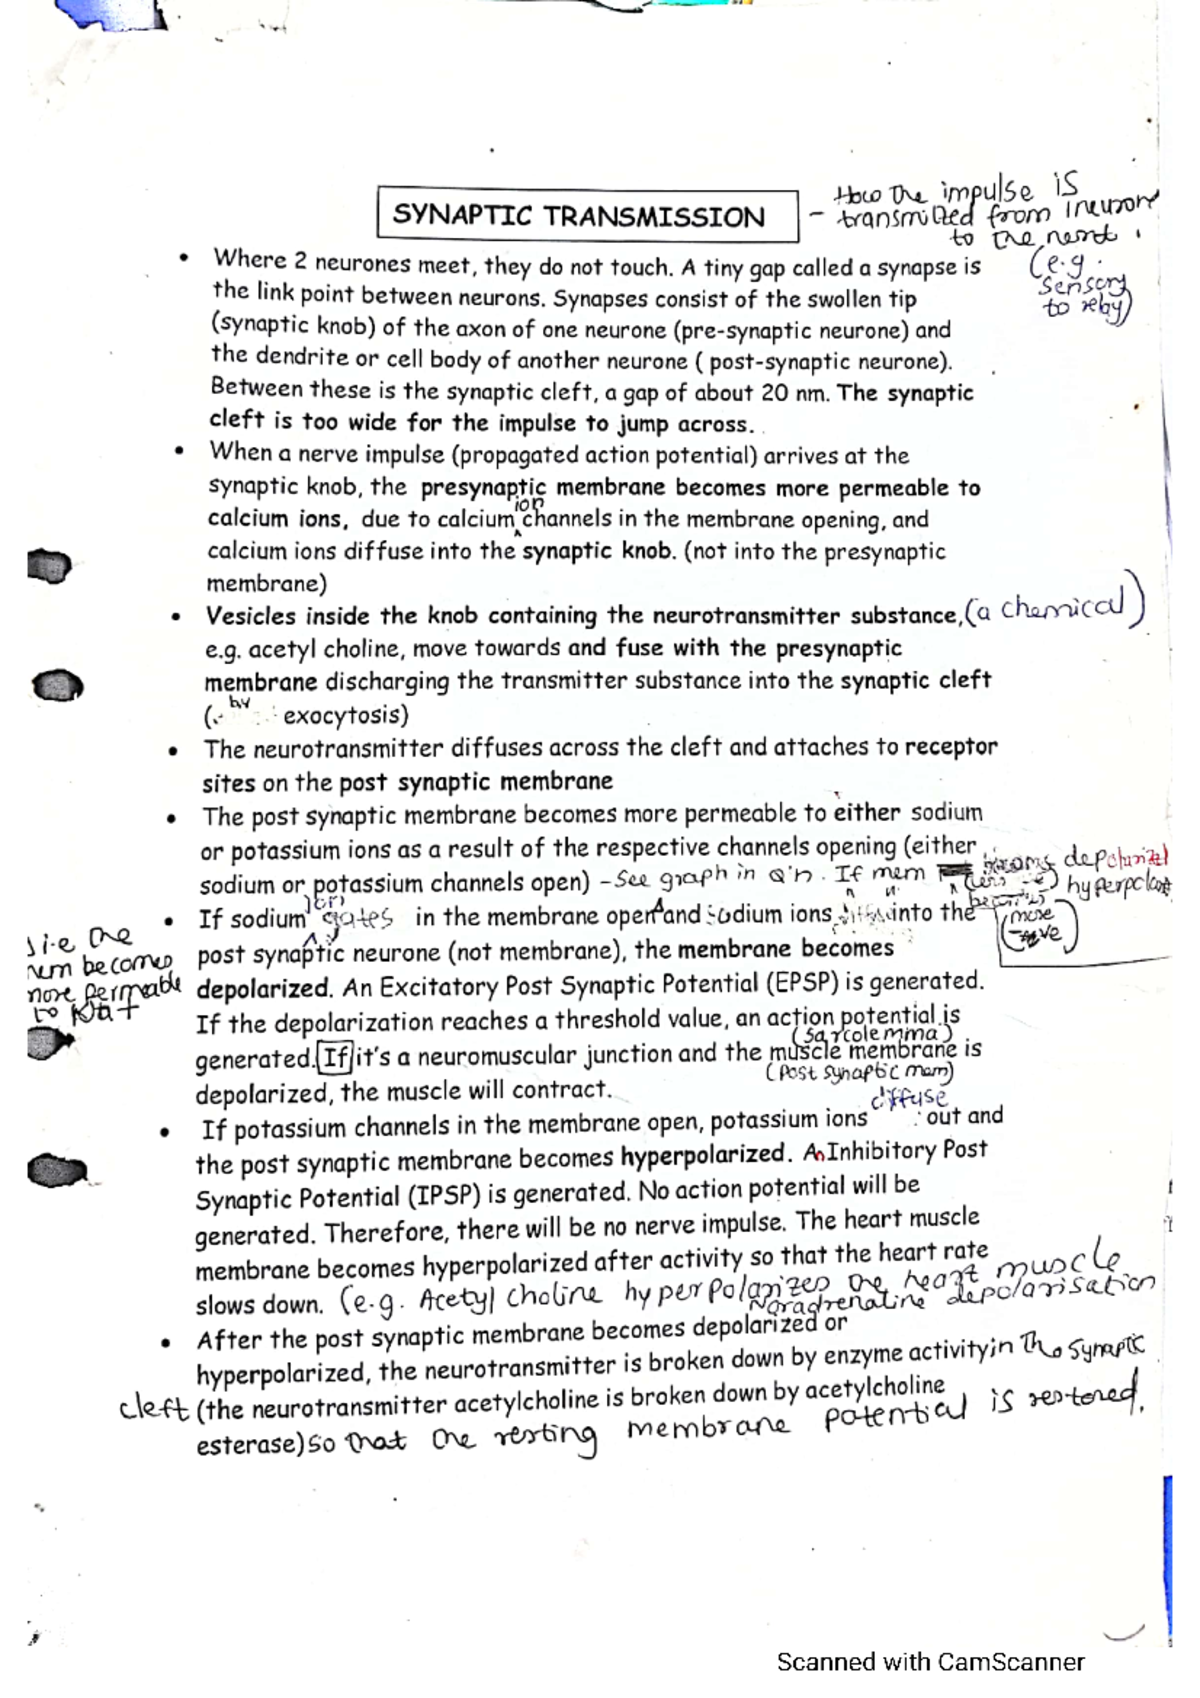 SYNAPTIC TRANSMISSION
- How the impulse is
transmitted from 1 neurone
to the next.
(e.g.
sensory
to relay)
• Where 2 neurones meet, they do not touch. A tiny gap called a synapse is
the link point between neurons. Synapses consist of the swollen tip
(synaptic knob) of the axon of one neurone (pre-synaptic neurone) and
the dendrite or cell body of another neurone ( post-synaptic neurone).
Between these is the synaptic cleft, a gap of about 20 nm. The synaptic
cleft is too wide for the impulse to jump across.
• When a nerve impulse (propagated action potential) arrives at the
synaptic knob, the presynaptic membrane becomes more permeable to
calcium ions, due to calcium ion channels in the membrane opening, and
calcium ions diffuse into the synaptic knob. (not into the presynaptic
membrane)
• Vesicles inside the knob containing the neurotransmitter substance, (a chemical)
e.g. acetyl choline, move towards and fuse with the presynaptic
membrane discharging the transmitter substance into the synaptic cleft
(by exocytosis)
• The neurotransmitter diffuses across the cleft and attaches to receptor
sites on the post synaptic membrane
• The post synaptic membrane becomes more permeable to either sodium
or potassium ions as a result of the respective channels opening (either
sodium or potassium channels open) - See graph in Q'n. If mem depolarized
(less -ve) hyperpolarized
becomes
(more
-ve)
• If sodium ion gates in the membrane open and sodium ions diffuse into the
i.e the
mem becomes
more permeable
to Na+
post synaptic neurone (not membrane), the membrane becomes
depolarized. An Excitatory Post Synaptic Potential (EPSP) is generated.
If the depolarization reaches a threshold value, an action potential is
(sarcolemma)
generated. If it's a neuromuscular junction and the muscle membrane is
(Post synaptic mem)
depolarized, the muscle will contract.
• If potassium channels in the membrane open, potassium ions diffuse out and
the post synaptic membrane becomes hyperpolarized. An Inhibitory Post
Synaptic Potential (IPSP) is generated. No action potential will be
generated. Therefore, there will be no nerve impulse. The heart muscle
membrane becomes hyperpolarized after activity so that the heart rate
slows down. (e.g. Acetyl choline hyperpolarizes the heart muscle
Noradrenaline depolarisation
• After the post synaptic membrane becomes depolarized or
hyperpolarized, the neurotransmitter is broken down by enzyme activity in the synaptic
cleft (the neurotransmitter acetylcholine is broken down by acetylcholine
esterase) so that the resting membrane potential is restored.
Scanned with CamScanner